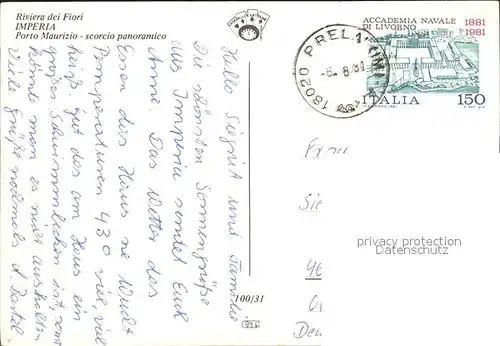 Riviera dei Fiori
IMPERIA
Porto Maurizio - scorcio panoramico
Hallo Siegrit und Familie
Die schönsten Sonnengrüße
aus Imperia sendet Euch
Anne. Das Wetter das
Essen das Haus ne Wucht
Temperaturen 43° viel, viel
heiß gut das am Haus ein
großes Schwimmbecken ist, sonst
könnte man es nicht aushalten
Viele Grüße nochmals A.
100/31
ACCADEMIA NAVALE 1881
DI LIVORNO 1981
ITALIA 150
18020 PREL
-6. 8. 81
Frau
Sie
46
Den
privacy protection
Datenschutz